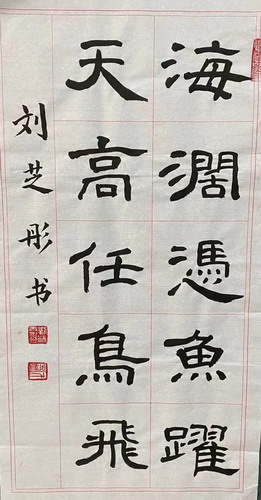 海濶憑魚躍
天高任鳥飛
刘芝彤书